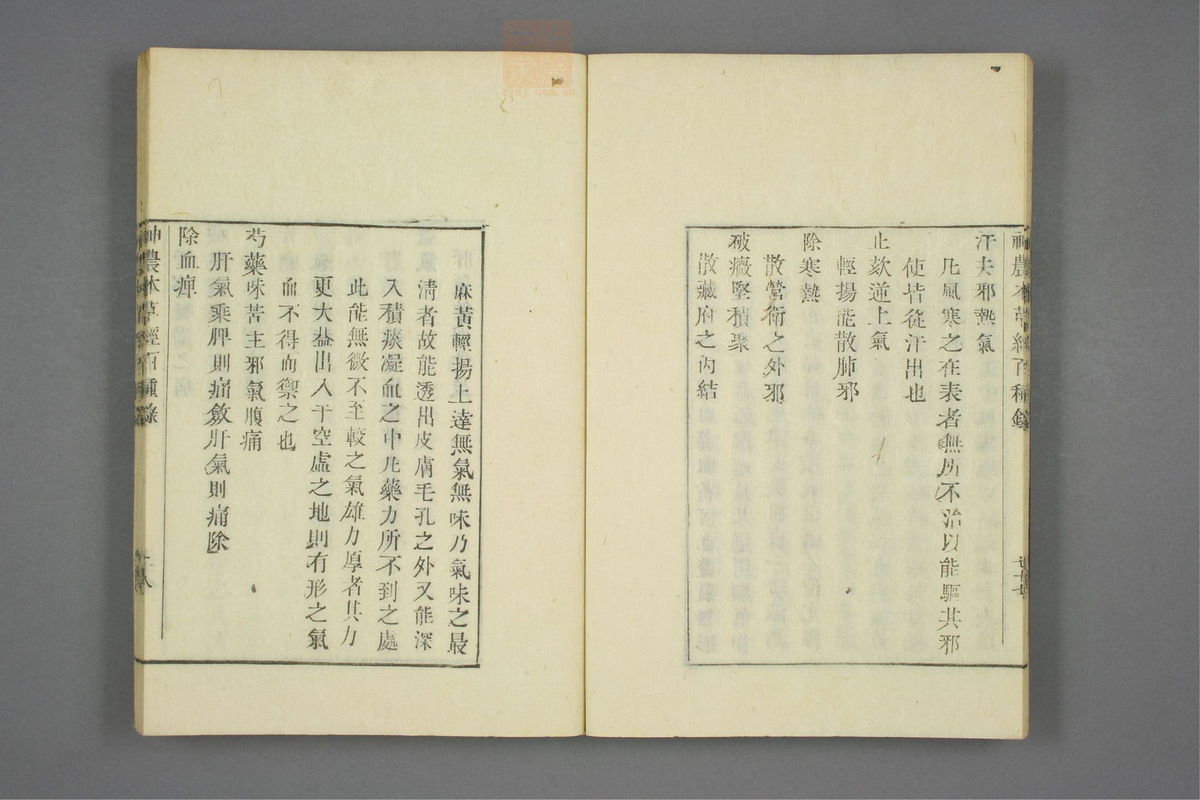 神農本草經百種錄
汗去邪熱氣
凡風寒之在表者無所不治以能驅其邪
使皆從汗出也
止欬逆上氣
輕揚能散肺邪
除寒熱
散營衛之外邪
破癥堅積聚
散藏府之內結
麻黃輕揚上達無氣無味乃氣味之最
清者故能透出皮膚毛孔之外又能深
入積痰凝血之中凡藥力所不到之處
此能無微不至較之氣雄力厚者其力
更大蓋出入于空虛之地則有形之氣
血不得而禦之也
芍藥味苦主邪氣腹痛
肝氣乘脾則痛斂肝氣則痛除
除血痺
神農本草經百種錄